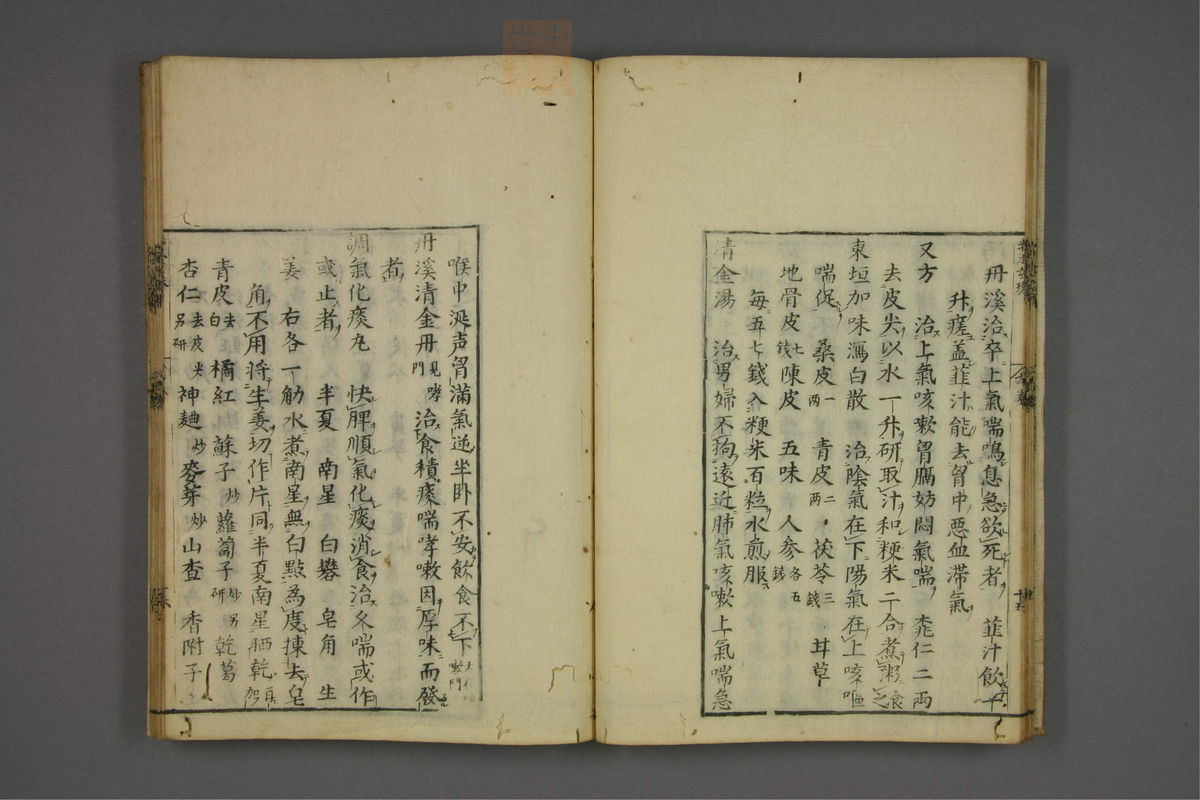 丹溪治卒上氣喘鳴息急欲死者 韮汁飲一
升瘥盖韮汁能去胷中惡血滯氣
又方 治上氣咳嗽胷膈妨悶氣喘 桃仁二兩
去皮尖以水一升研取汁和粳米二合煮粥食之
東垣加味瀉白散 治陰氣在下陽氣在上咳嘔
喘促 桑皮一两 青皮二两 茯苓三錢 甘草
地骨皮七錢 陳皮 五味 人參各五錢
每五七錢入粳米百粒水煎服
清金湯 治男婦不拘遠近肺氣咳嗽上氣喘急
喉中涎声胷滿氣逆坐卧不安飲食不下
丹溪清金丹見哮門 治食積痰喘哮嗽因厚味而發
者
調氣化痰丸 快脾順氣化痰消食治久喘或作
或止者 半夏 南星 白礬 皂角 生
姜 右各一觔水煮南星無白點為度揀去皂
角不用將生姜切作片同半夏南星晒乾
青皮去白 橘紅 蘇子炒 蘿蔔子炒另研 乾葛
杏仁去皮尖另研 神麯炒 麥芽炒 山査 香附子